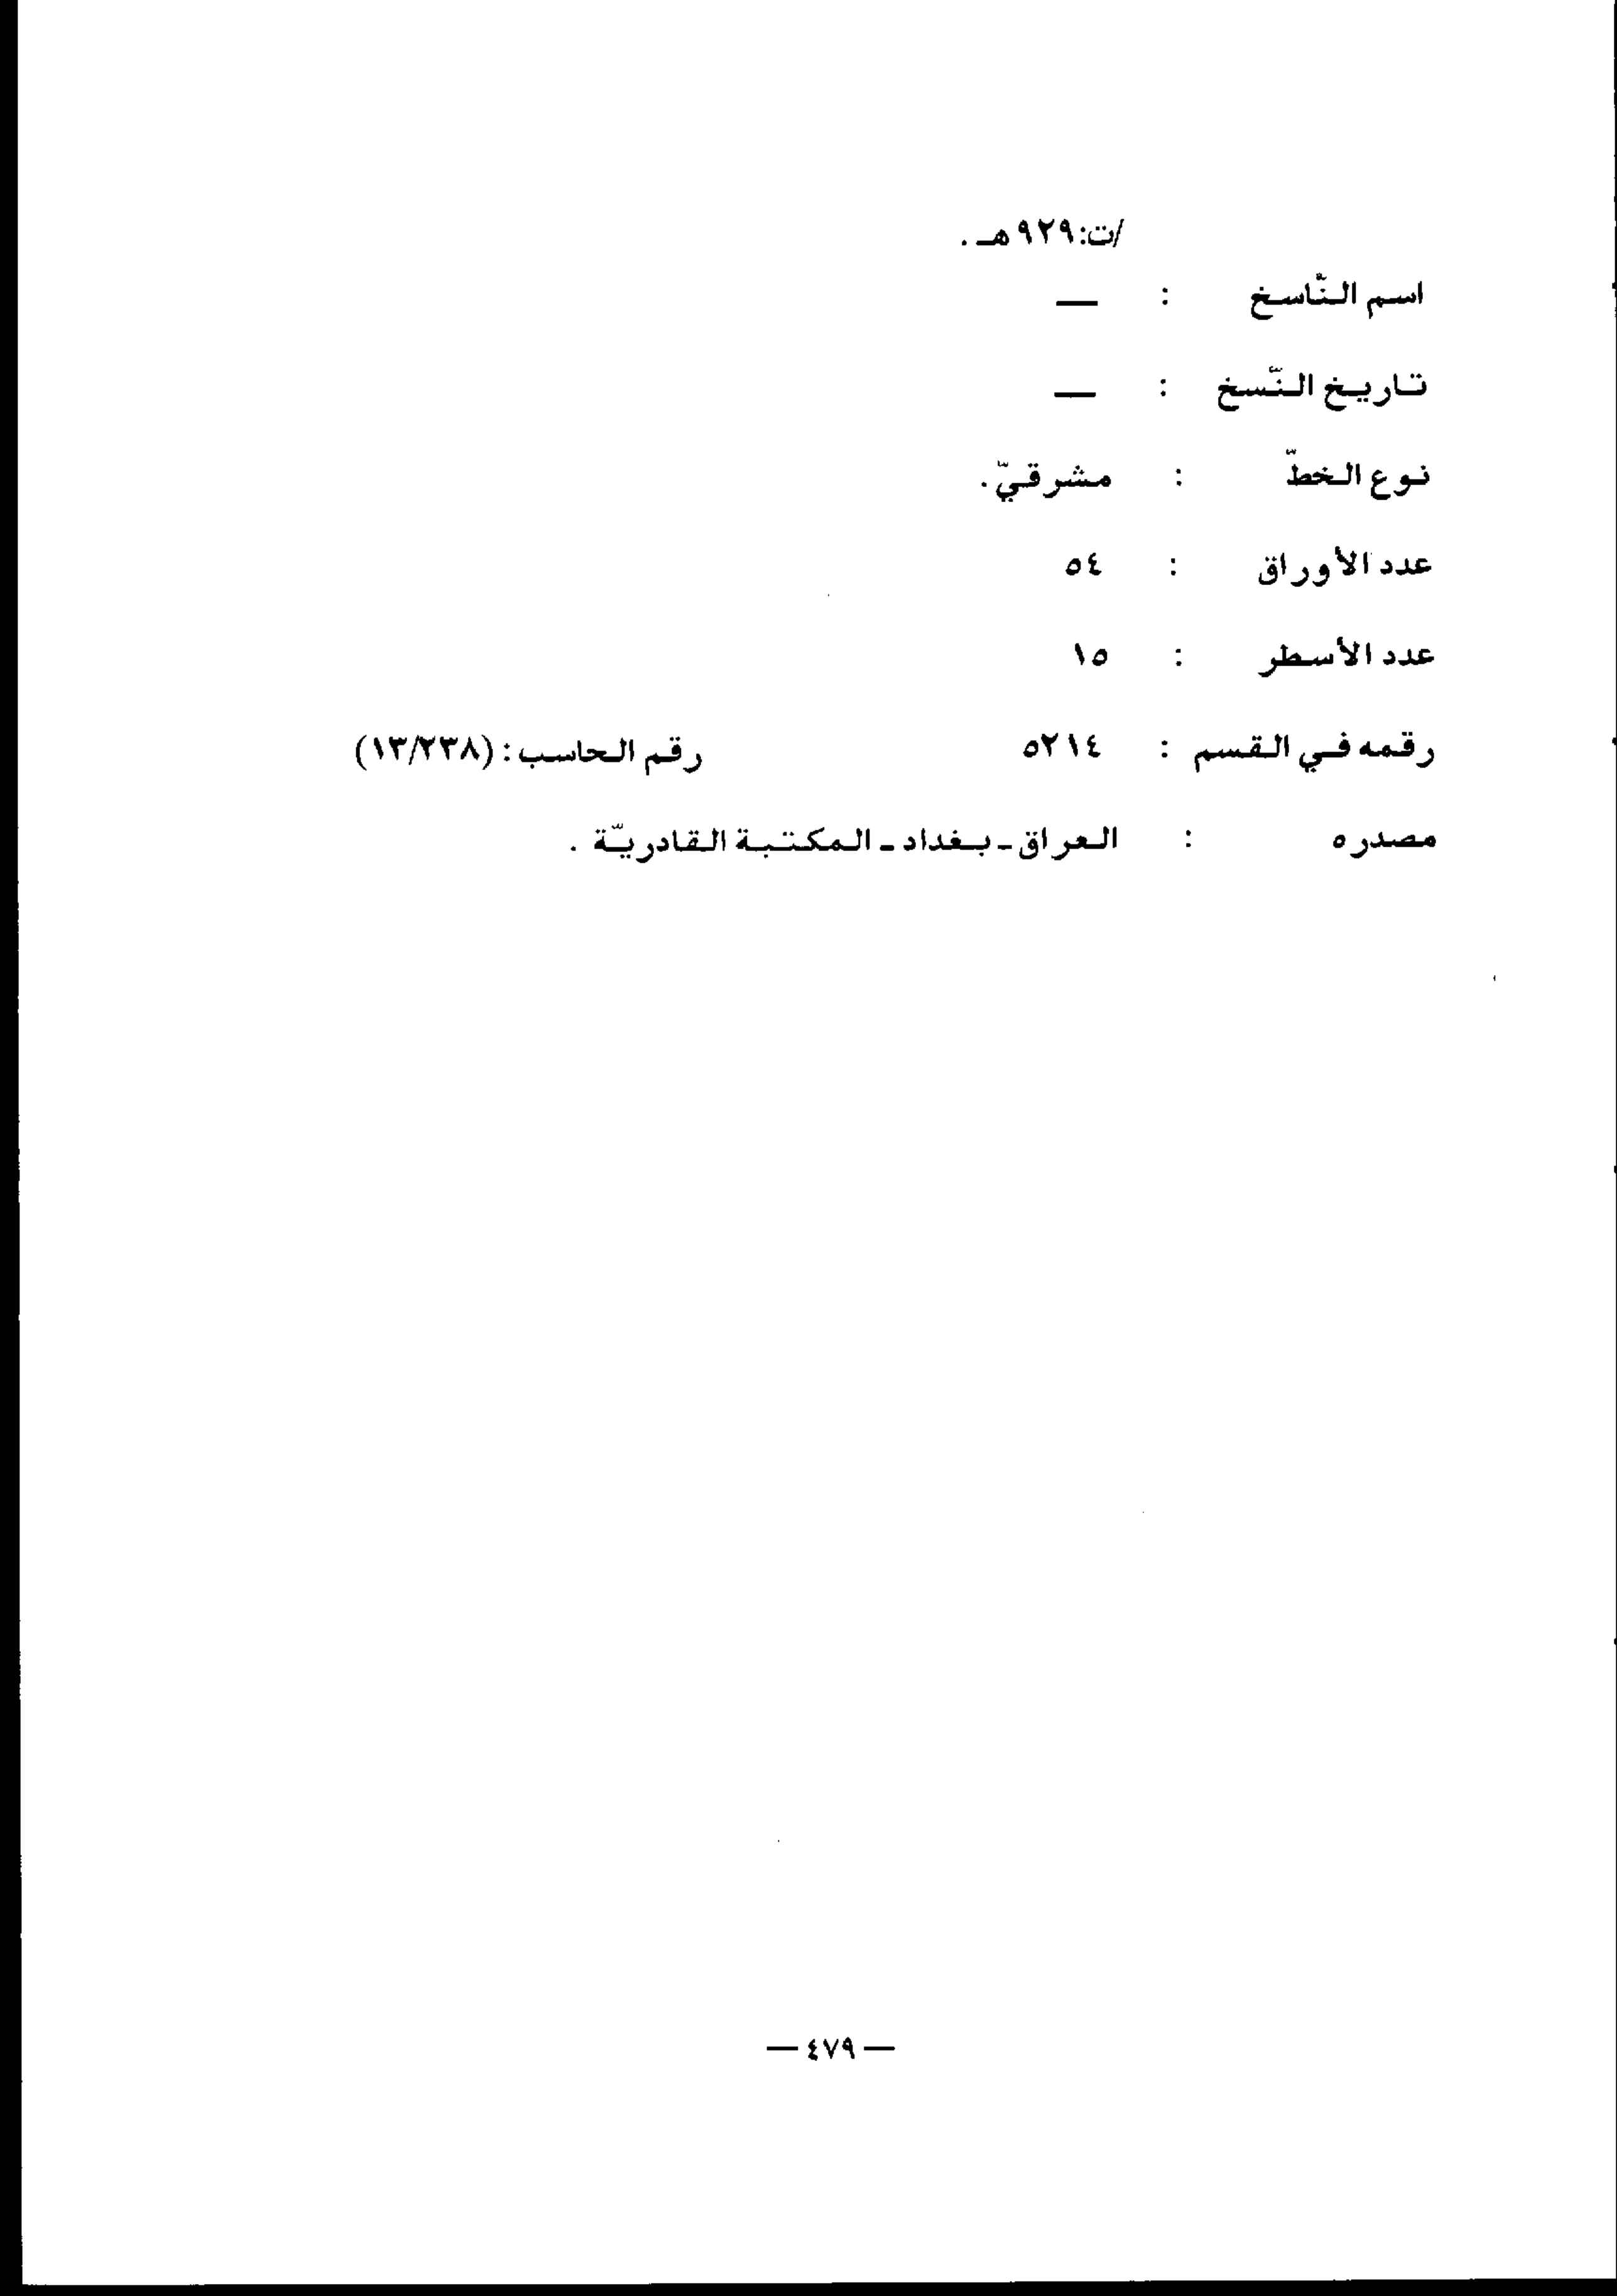 /ت:٩٢٩هـ .
اسم النّاسخ : —
تاريخ النّسخ : —
نوع الخطّ : مشرقيّ.
عدد الأوراق : ٥٤
عدد الأسطر : ١٥
رقمه في القسم : ٥٢١٤ رقم الحاسب : (١٣/٢٣٨)
مصدره : العراق - بغداد - المكتبة القادريّة .
— ٤٧٩ —